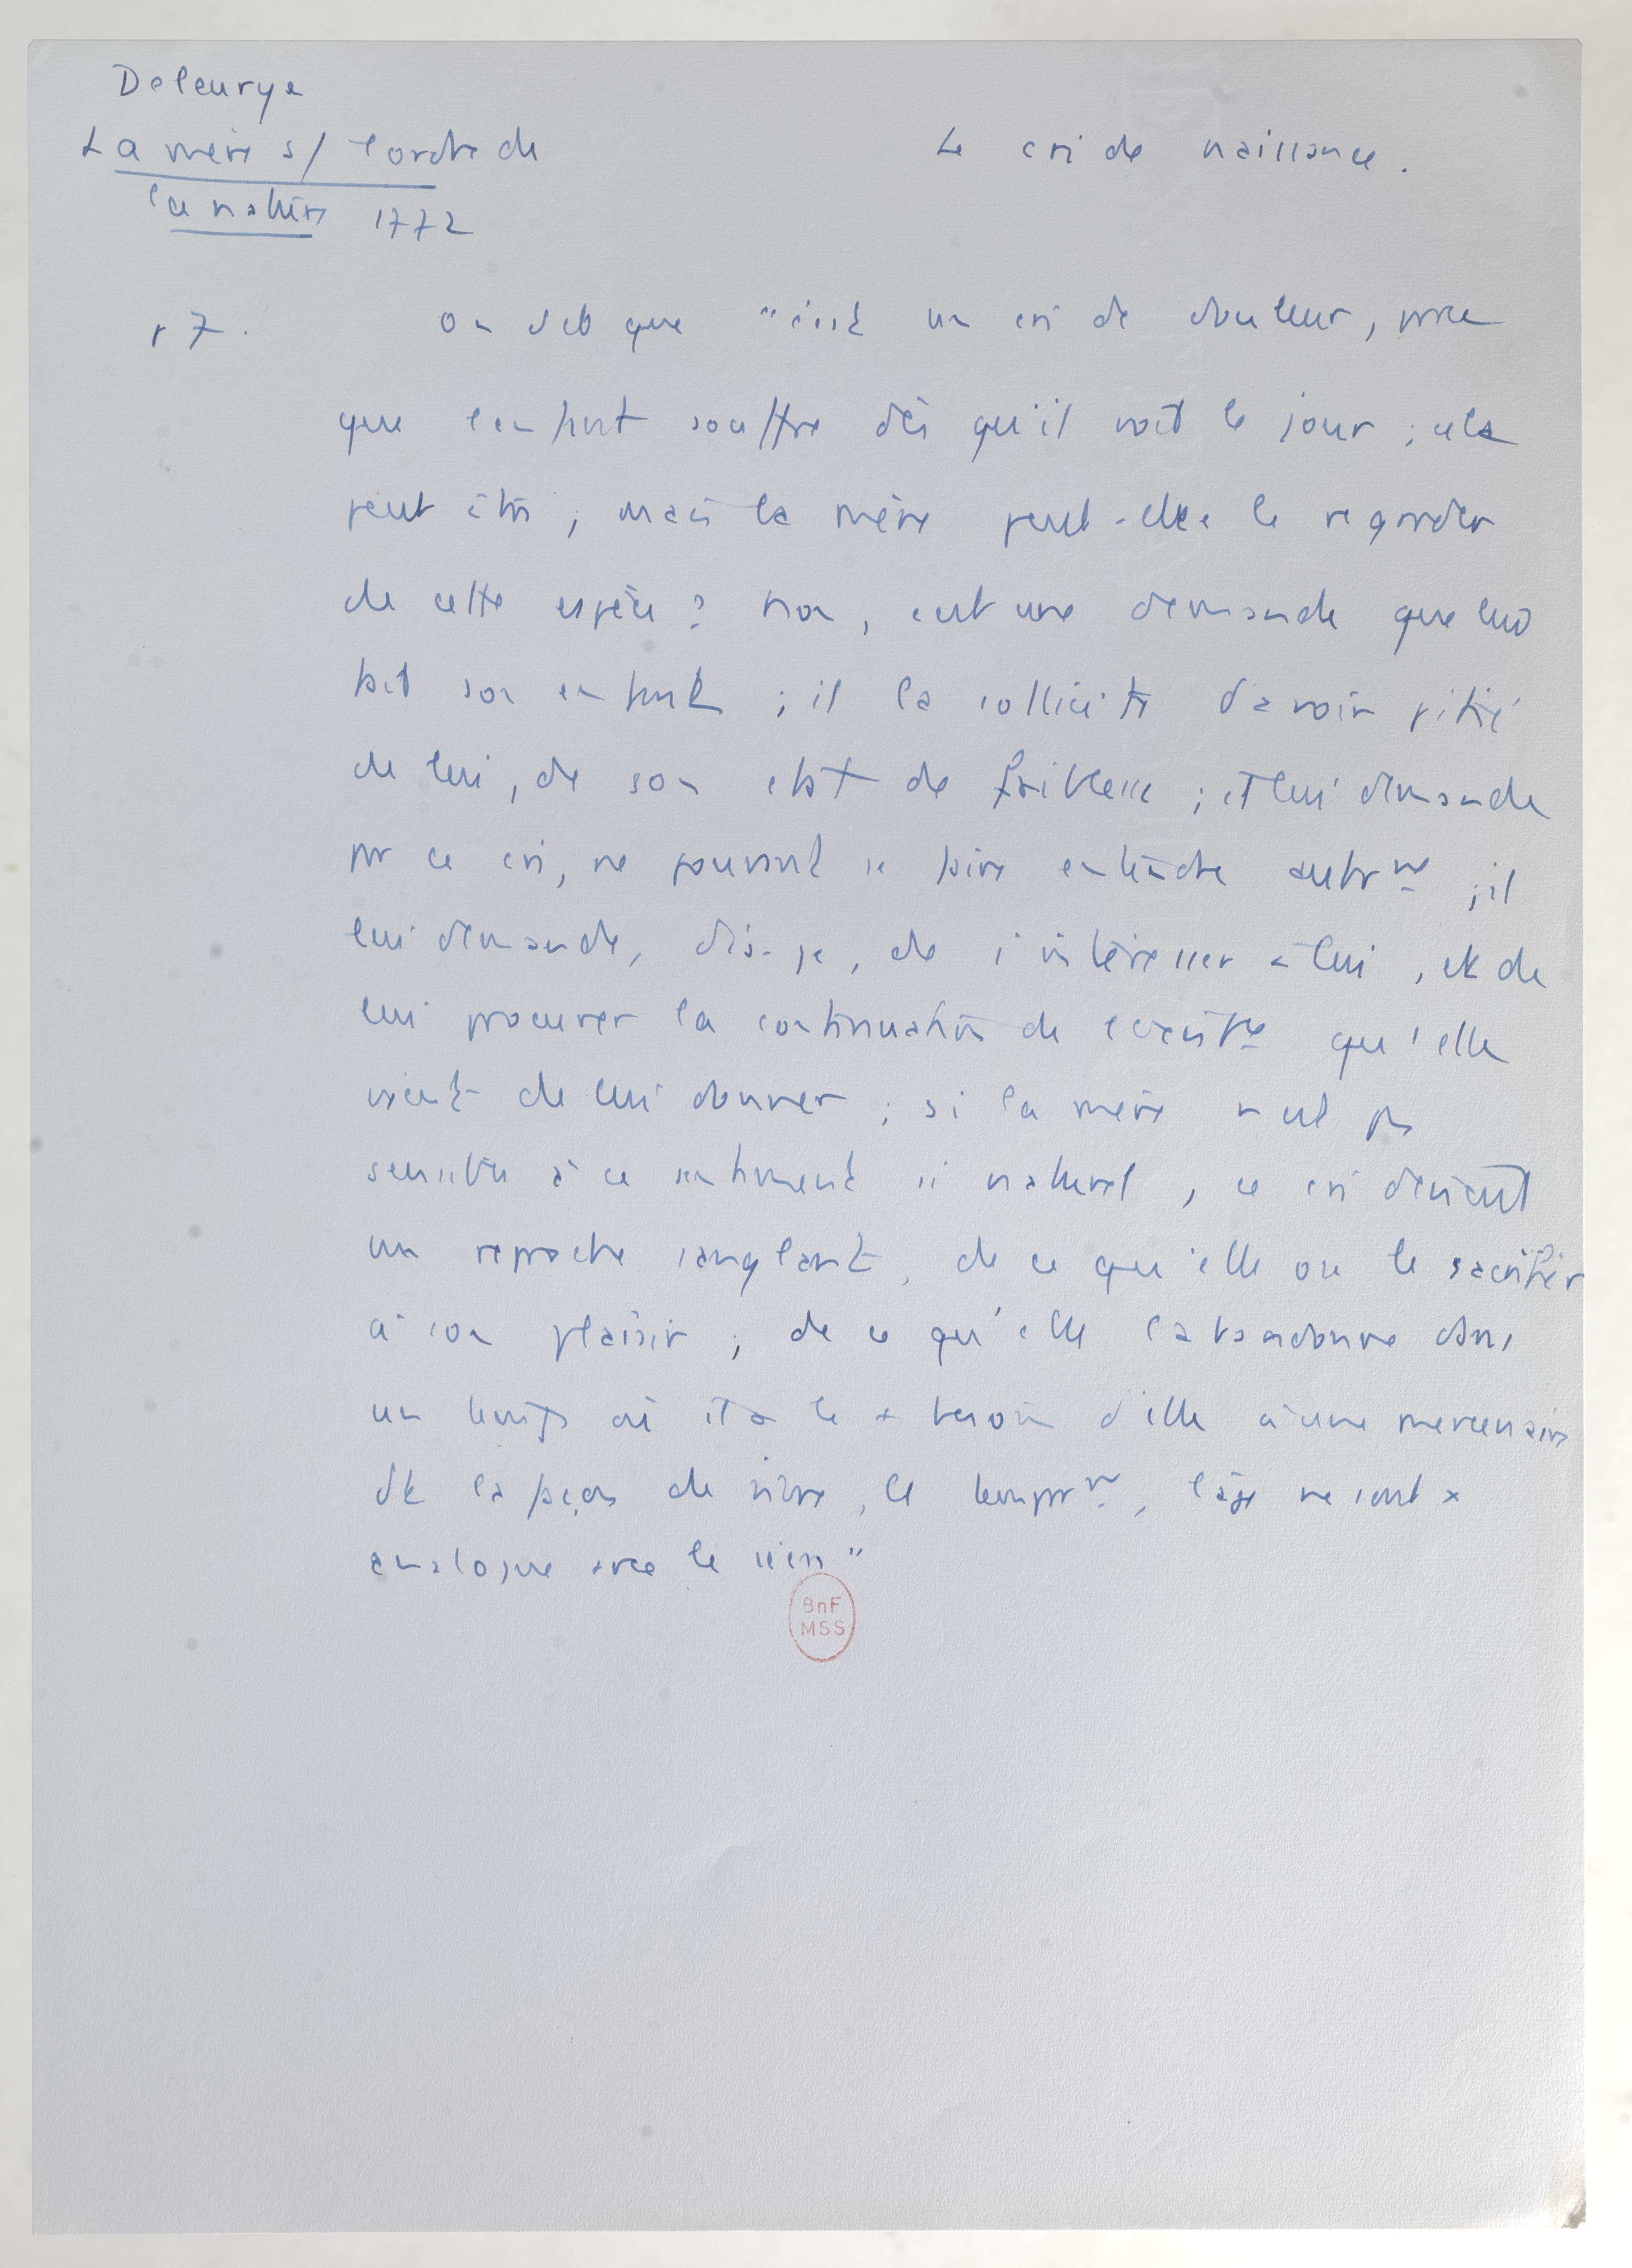 Deleurye
La mère s/ l'ordre de
la nature 1772
Le cri de naissance.
p 7.
On dit que "c'est un cri de douleur, parce
que l'enfant souffre dès qu'il voit le jour ; cela
peut être, mais la mère peut-elle le regarder
de cette espèce ? Non, c'est une demande que lui
fait son enfant ; il la sollicite d'avoir pitié
de lui, de son état de faiblesse ; il lui demande
par ce cri, ne pouvant se faire entendre autrmt ; il
lui demande, dis-je, de s'intéresser à lui, et de
lui procurer la continuation de l'existce qu'elle
vient de lui donner ; si la mère n'est pas
sensible à ce sentiment si naturel, ce cri devient
un reproche sanglant, de ce qu'elle ose le sacrifier
à son plaisir ; de ce qu'elle l'abandonne dans
un temps où il a le + besoin d'elle à une mercenaire
dt la façon de vivre, le temprmt, l'âge ne sont x
analogue avec le sien"
BnF
MSS